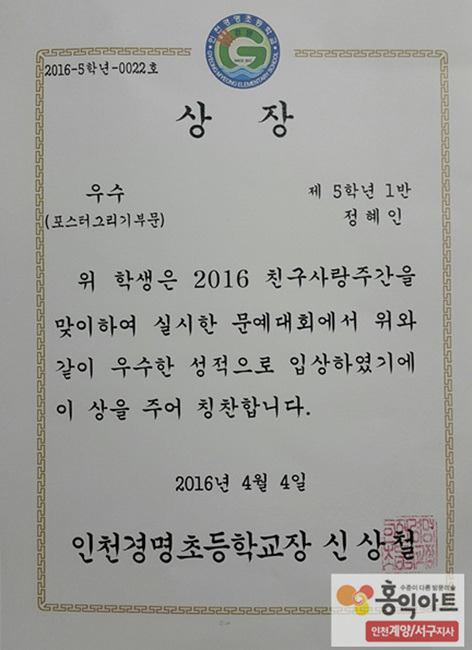 인천경명초등학교
GYEONG MYEONG ELEMENTARY SCHOOL
2016-5학년-0022호
상 장
우수
제 5학년 1반
(포스터그리기부문)
정혜인
위 학생은 2016 친구사랑주간을
맞이하여 실시한 문예대회에서 위와
같이 우수한 성적으로 입상하였기에
이 상을 주어 칭찬합니다.
2016년 4월 4일
인천경명초등학교장 신상철
수준이 다른 방문미술
홍익아트
인천계양/서구지사